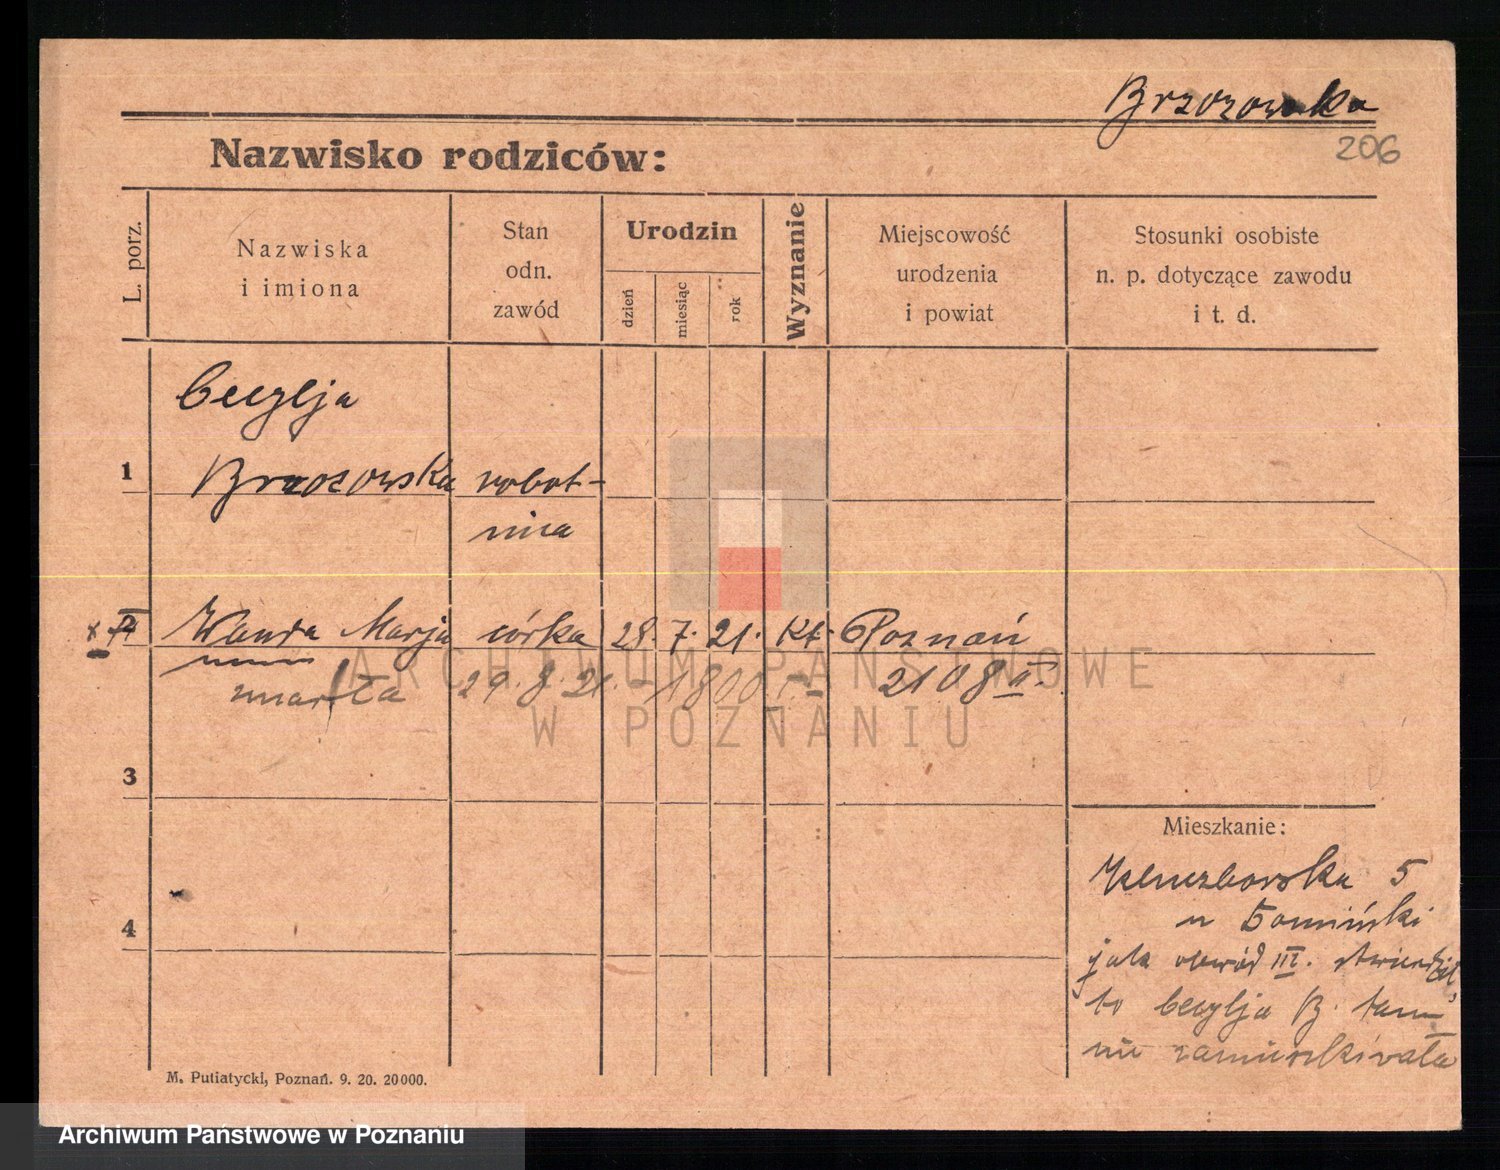 Brzozowska
206
Nazwisko rodziców:
L. porz.
Nazwiska
i imiona
Stan
odn.
zawód
Urodzin
dzień
miesiąc
rok
Wyznanie
Miejscowość
urodzenia
i powiat
Stosunki osobiste
n. p. dotyczące zawodu
i t. d.
Cecylja
1 Brzozowska robot-
nica
x II Wanda Marja córka 28. 7. 21. Kt. Poznań
zmarła 29. 8. 21. 2108 II
ARCHIWUM PAŃSTWOWE
W POZNANIU
3
Mieszkanie:
5
4 u Łomiński
jak obwód III. stwierdził,
to Cecylja B. tam
nie zamieszkiwała
M. Putiatycki, Poznań. 9. 20. 20000.
Archiwum Państwowe w Poznaniu